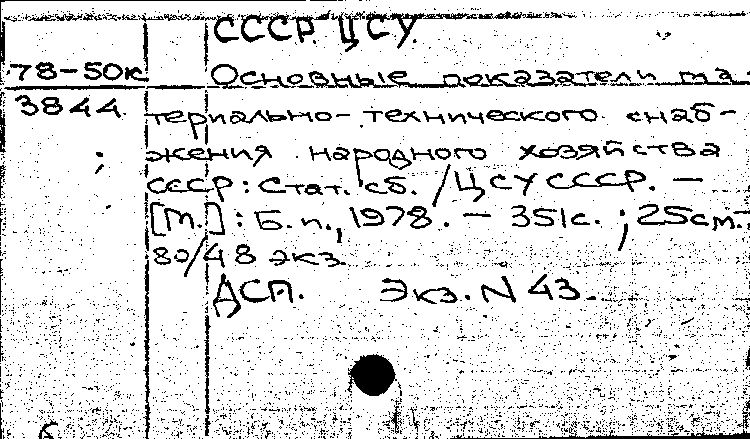 СССР. ЦСУ.
78-50к Основные показатели ма-
3844 териально-технического снаб-
жения народного хозяйства
СССР: Стат. сб. /ЦСУ СССР. —
[М.]: Б. и., 1978. — 351с. ; 25см.-
80/48 экз.
ДСП. Экз. N 43.